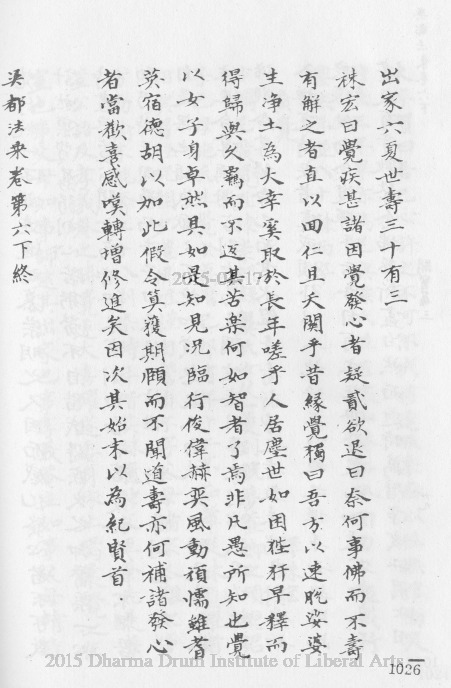 出家六夏世壽三十有三
祩宏曰覺疾甚諸因覺發心者疑貳欲退曰奈何事佛而不壽
有解之者直以回仁且夭關乎昔緣覺獨曰吾方以速脫娑婆
生淨土為大幸奚取於長年嗟乎人居塵世如困狴犴早釋而
得歸與久羈而不返其苦楽何如智者了焉非凡愚所知也覺
以女子身卓然具如是知見況臨行俊偉赫奕風動頑懦雖耆
英宿德胡以加此假令真獲期頤而不聞道壽亦何補諸發心
者當歡喜感嘆轉增修進矣因次其始末以為紀賢首
吳都法乗卷第六下終
2015 Dharma Drum Institute of Liberal Arts
1026